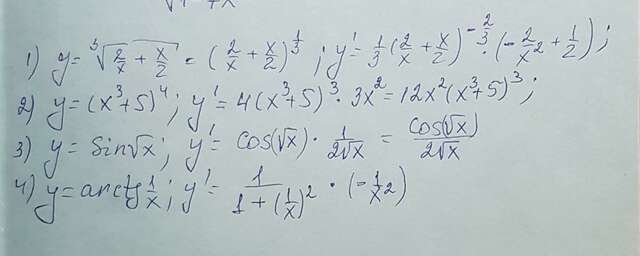 1) y = ∛(2/x + x/2) = (2/x + x/2)^(1/3); y' = 1/3 (2/x + x/2)^(-2/3) · (-2/x² + 1/2);
2) y = (x³+5)⁴; y' = 4(x³+5)³ · 3x² = 12x²(x³+5)³;
3) y = sin√x; y' = cos(√x) · 1/(2√x) = cos(√x)/(2√x)
4) y = arctg 1/x; y' = 1/(1+(1/x)²) · (-1/x²)